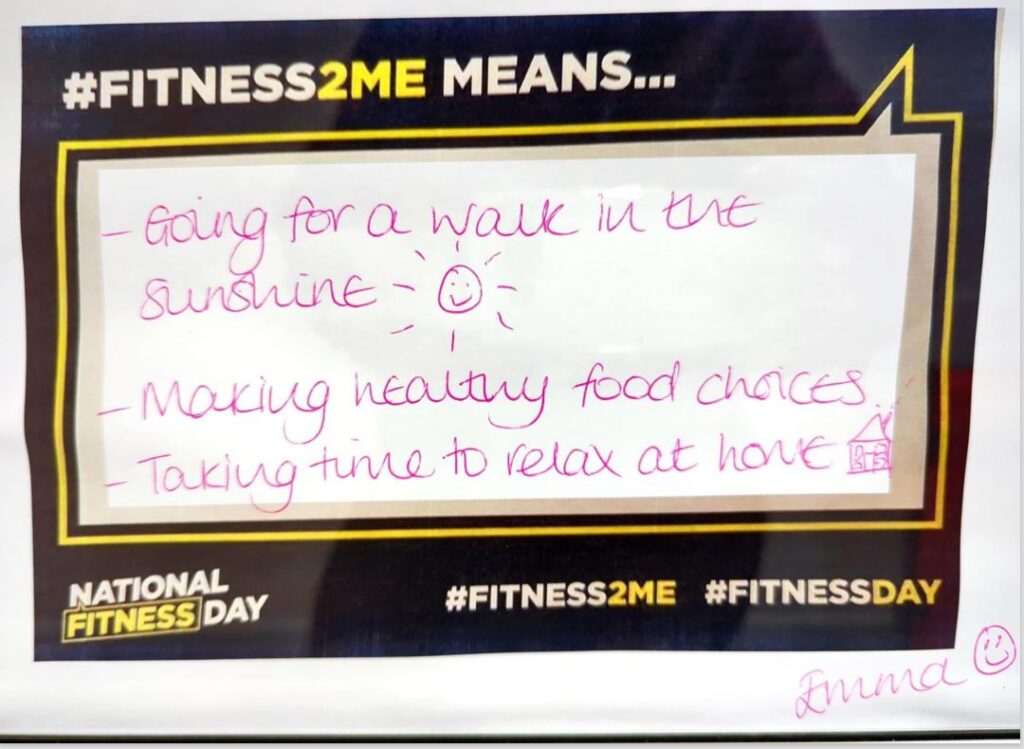 #FITNESS2ME MEANS...
- Going for a walk in the
sunshine
- Making healthy food choices.
- Taking time to relax at home
NATIONAL
FITNESS DAY
#FITNESS2ME #FITNESSDAY
Emma